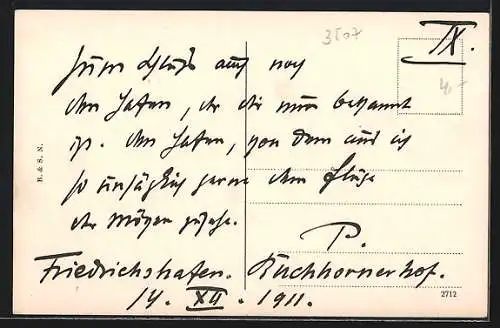 3507
IX.
4,-
Zum Schluß auch noch
den Hafen, der dir nun bekannt
ist. Den Hafen, von dem aus ich
so unsäglich gerne dem Fluge
der Möven zusehe.
P.
Friedrichshafen. Buchhornerhof.
14. XII. 1911.
B. & S. N.
2712